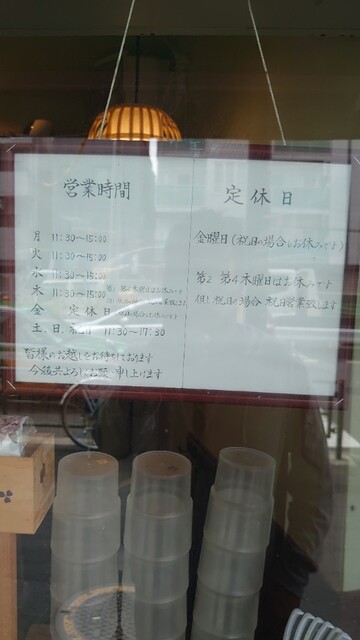 営業時間
月 11:30〜15:00
火 11:30〜15:00
水 11:30〜15:00
木 11:30〜15:00 第2 第4木曜日はお休みです
金 定休日
土、日、祝日 11:30〜17:30
皆様のお越しをお待ちしております
今後共よろしくお願い申し上げます
定休日
金曜日(祝日の場合もお休みです)
第2 第4木曜日はお休みです
但し祝日の場合 祝日営業致します